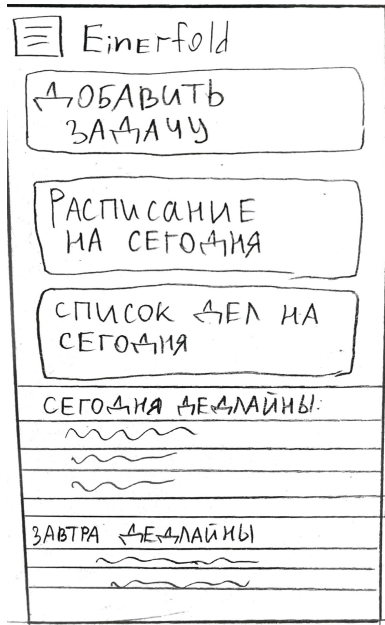 Einerfold
ДОБАВИТЬ
ЗАДАЧУ
РАСПИСАНИЕ
НА СЕГОДНЯ
СПИСОК ДЕЛ НА
СЕГОДНЯ
СЕГОДНЯ ДЕДЛАЙНЫ:
ЗАВТРА ДЕДЛАЙНЫ